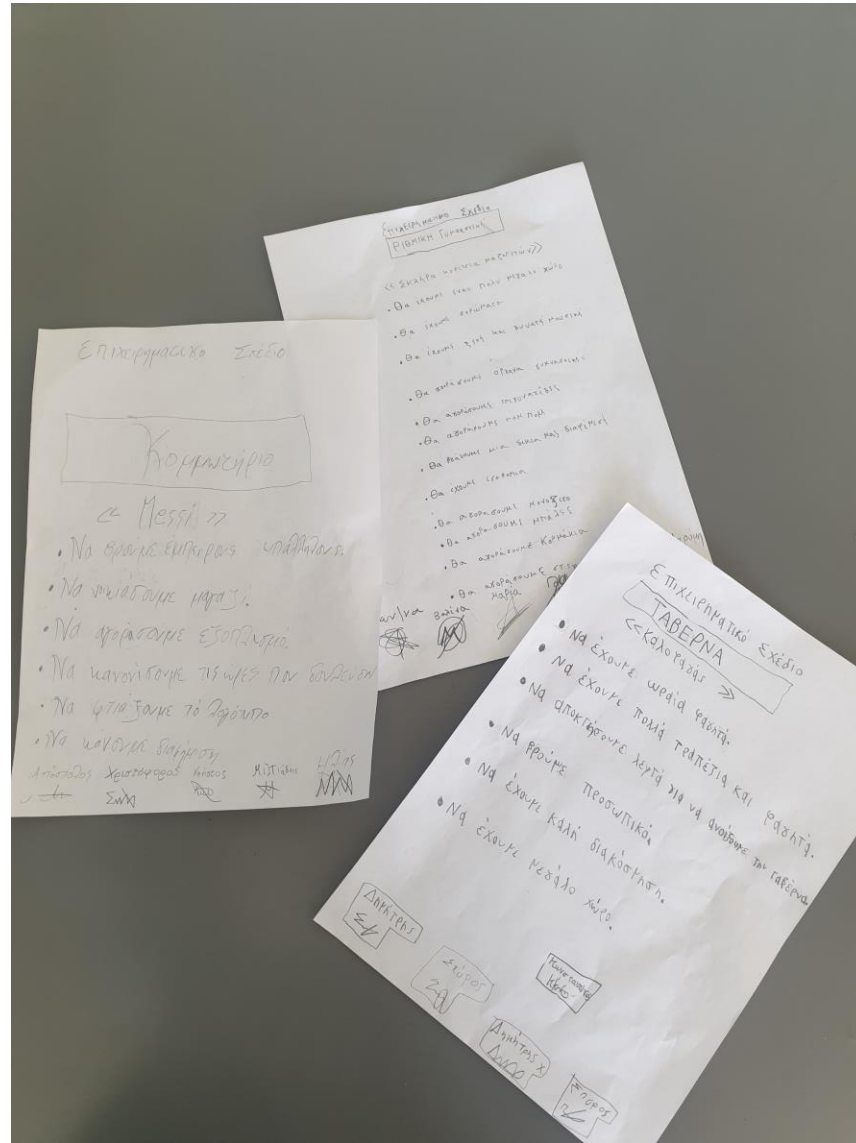 Επιχειρηματικο Σχέδιο
Κομμωτήριο
<< Messi >>
• Να βρούμε έμπειρους υπαλλήλους.
• Να νοικιάσουμε μαγαζί.
• Να αγοράσουμε εξοπλισμό.
• Να κανονίσουμε τις ώρες που δουλεύουν
• Να φτιάξουμε το λογότυπο
• Να κάνουμε διαφήμιση
Απόστολος Χριστόφορος Μιλτιάδης Ηλίας
Επιχειρηματικο Σχέδιο
Ρίθμικη Γυμναστική
• Θα έχουμε έναν πολύ μεγάλο χώρο
• Θα έχουμε στρώματα
• Θα έχουμε και δυνατή μουσική
• Θα αγοράσουμε όργανα γυμναστικής.
• Θα αγοράσουμε
• Θα αγοράσουμε
• Θα φτιάξουμε μια δικια μας διαφήμιση
• Θα έχουμε
• Θα αγοράσουμε μονόζυγο
• Θα αγοράσουμε μπάλες
• Θα αγοράσουμε Κορμάκια
• Θα αγοράσουμε
Μαρία
Επιχειρηματικό Σχέδιο
ΤΑΒΕΡΝΑ
<<Καλοφαγάς >>
• Να έχουμε ωραία φαγητά.
• Να έχουμε πολλά τραπέζια και φαγητά.
• Να αποκτήσουμε λεφτά για να ανοίξουμε την ταβέρνα.
• Να βρούμε προσωπικό.
• Να έχουμε καλή διακόσμηση.
• Να έχουμε μεγάλο χώρο.
Δημήτρης
Σπύρος
Κωνσταντίνος
Δημήτρης Χ
Σπύρος